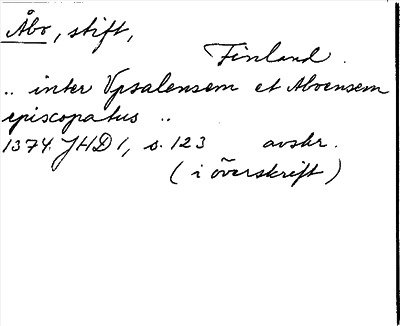 Åbo, stift,
Finland.
.. inter Vpsalensem et Aboensem
episcopatus ..
1374. JHD 1, s. 123 avskr.
(i överskrift)